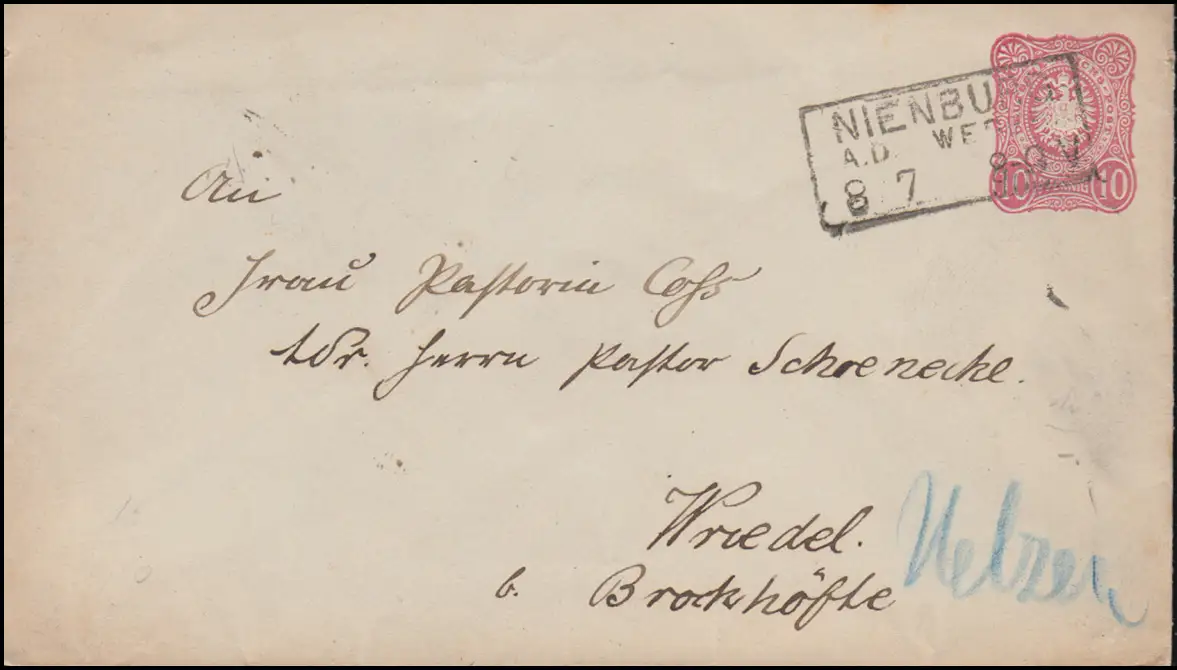 NIENBU
A.D. WE
8 7 8-9 V
10 10
An
Frau Pastorin Coss
Adr. Herrn Pastor Schoenecke.
Wriedel.
b. Brockhöfte
Uelzen